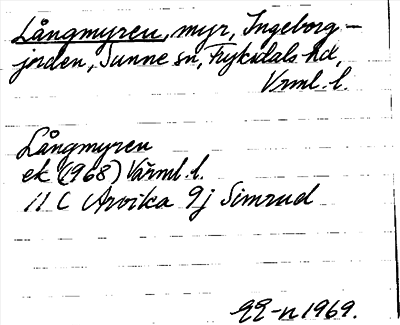 Långmyren, myr, Ingeborg-
jorden, Sunne sn, Fryksdals hd,
Vrml. l.
Långmyren
ek (1968) Värml. l.
11 C Arvika 9j Simrud
-n 1969.